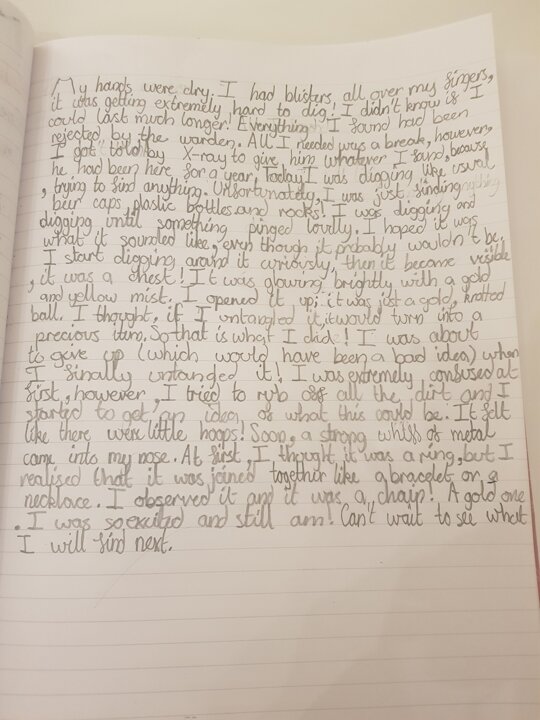 My hands were dry. I had blisters all over my fingers,
it was getting extremely hard to dig! I didn't know if I
could last much longer! Everything I found had been
rejected by the warden. All I needed was a break, however,
I got told by X-ray to give him whatever I found, because
he had been here for a year! Today I was digging like usual
, trying to find anything. Unfortunately, I was just finding
beer caps, plastic bottles and rocks! I was digging and
digging until something pinged loudly. I hoped it was
what it sounded like, even though it probably wouldn't be.
I start digging around it curiously, then it became visible
, it was a chest! It was glowing brightly with a gold
and yellow mist. I opened it up; it was just a gold, knotted
ball. I thought, if I untangled it, it would turn into a
precious item. So that is what I did! I was about
to give up (which would have been a bad idea) when
I finally untangled it! I was extremely confused at
first, however, I tried to rub off all the dirt and I
started to get an idea of what this could be. It felt
like there were little hoops! Soon, a strong whiff of metal
came into my nose. At first, I thought it was a ring, but I
realised that it was joined together like a bracelet or a
necklace. I observed it and it was a chain! A gold one
. I was so excited and still am! Can't wait to see what
I will find next.